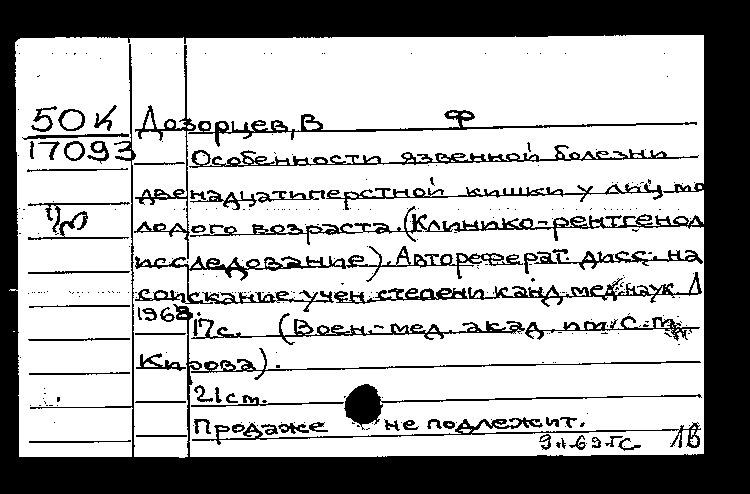 50К Дозорцев, В Ф
17093 Особенности язвенной болезни
двенадцатиперстной кишки у лиц мо
лодого возраста. (Клинико-рентгенол
исследование). Автореферат дисс. на
соискание учен. степени канд. мед. наук Л
1968.
17с. (Воен.-мед. акад. им. С. М.
Кирова).
21 см.
Продаже не подлежит.
1В